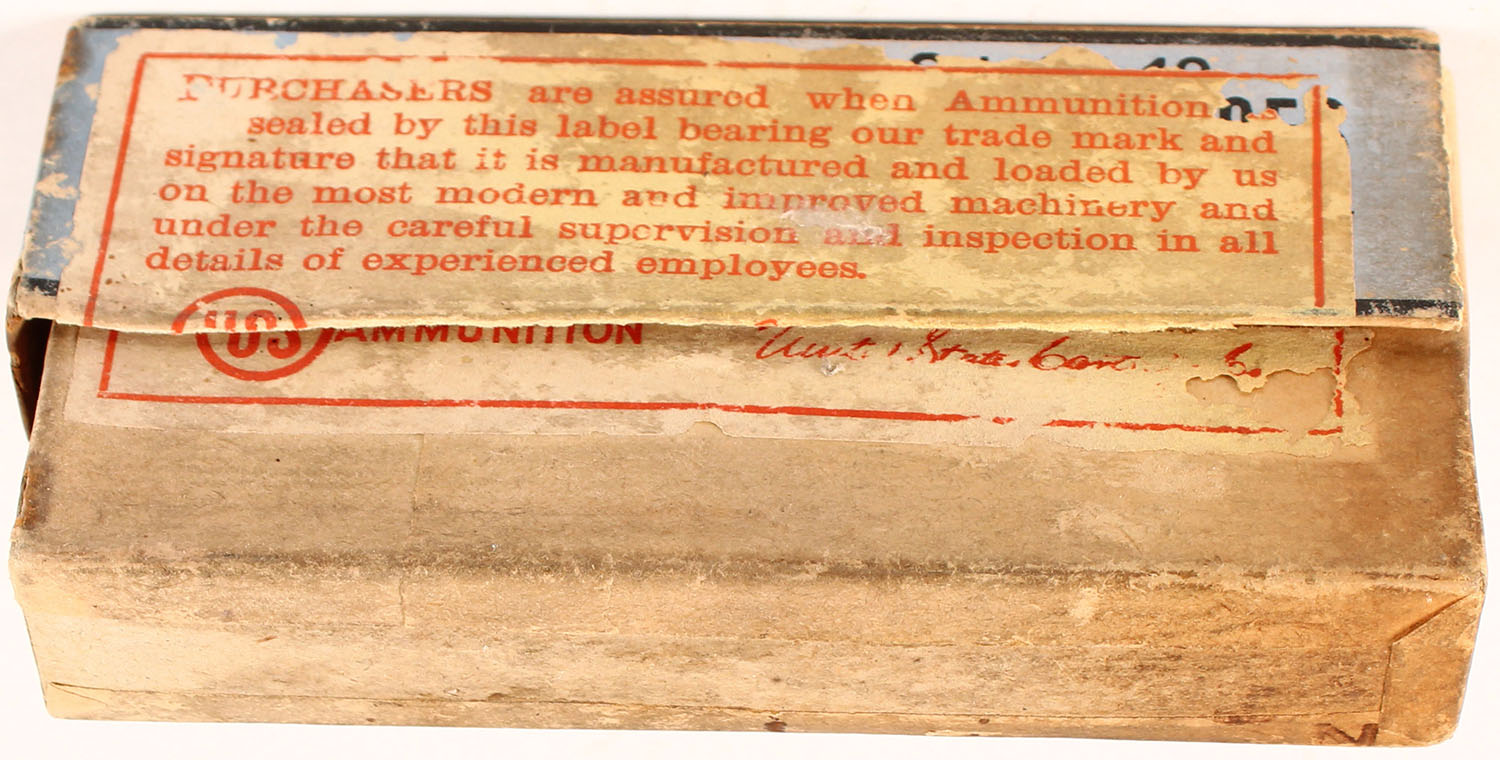 PURCHASERS are assured when Ammunition is
sealed by this label bearing our trade mark and
signature that it is manufactured and loaded by us
on the most modern and improved machinery and
under the careful supervision and inspection in all
details of experienced employees.
US AMMUNITION
United States Cartridge Co.